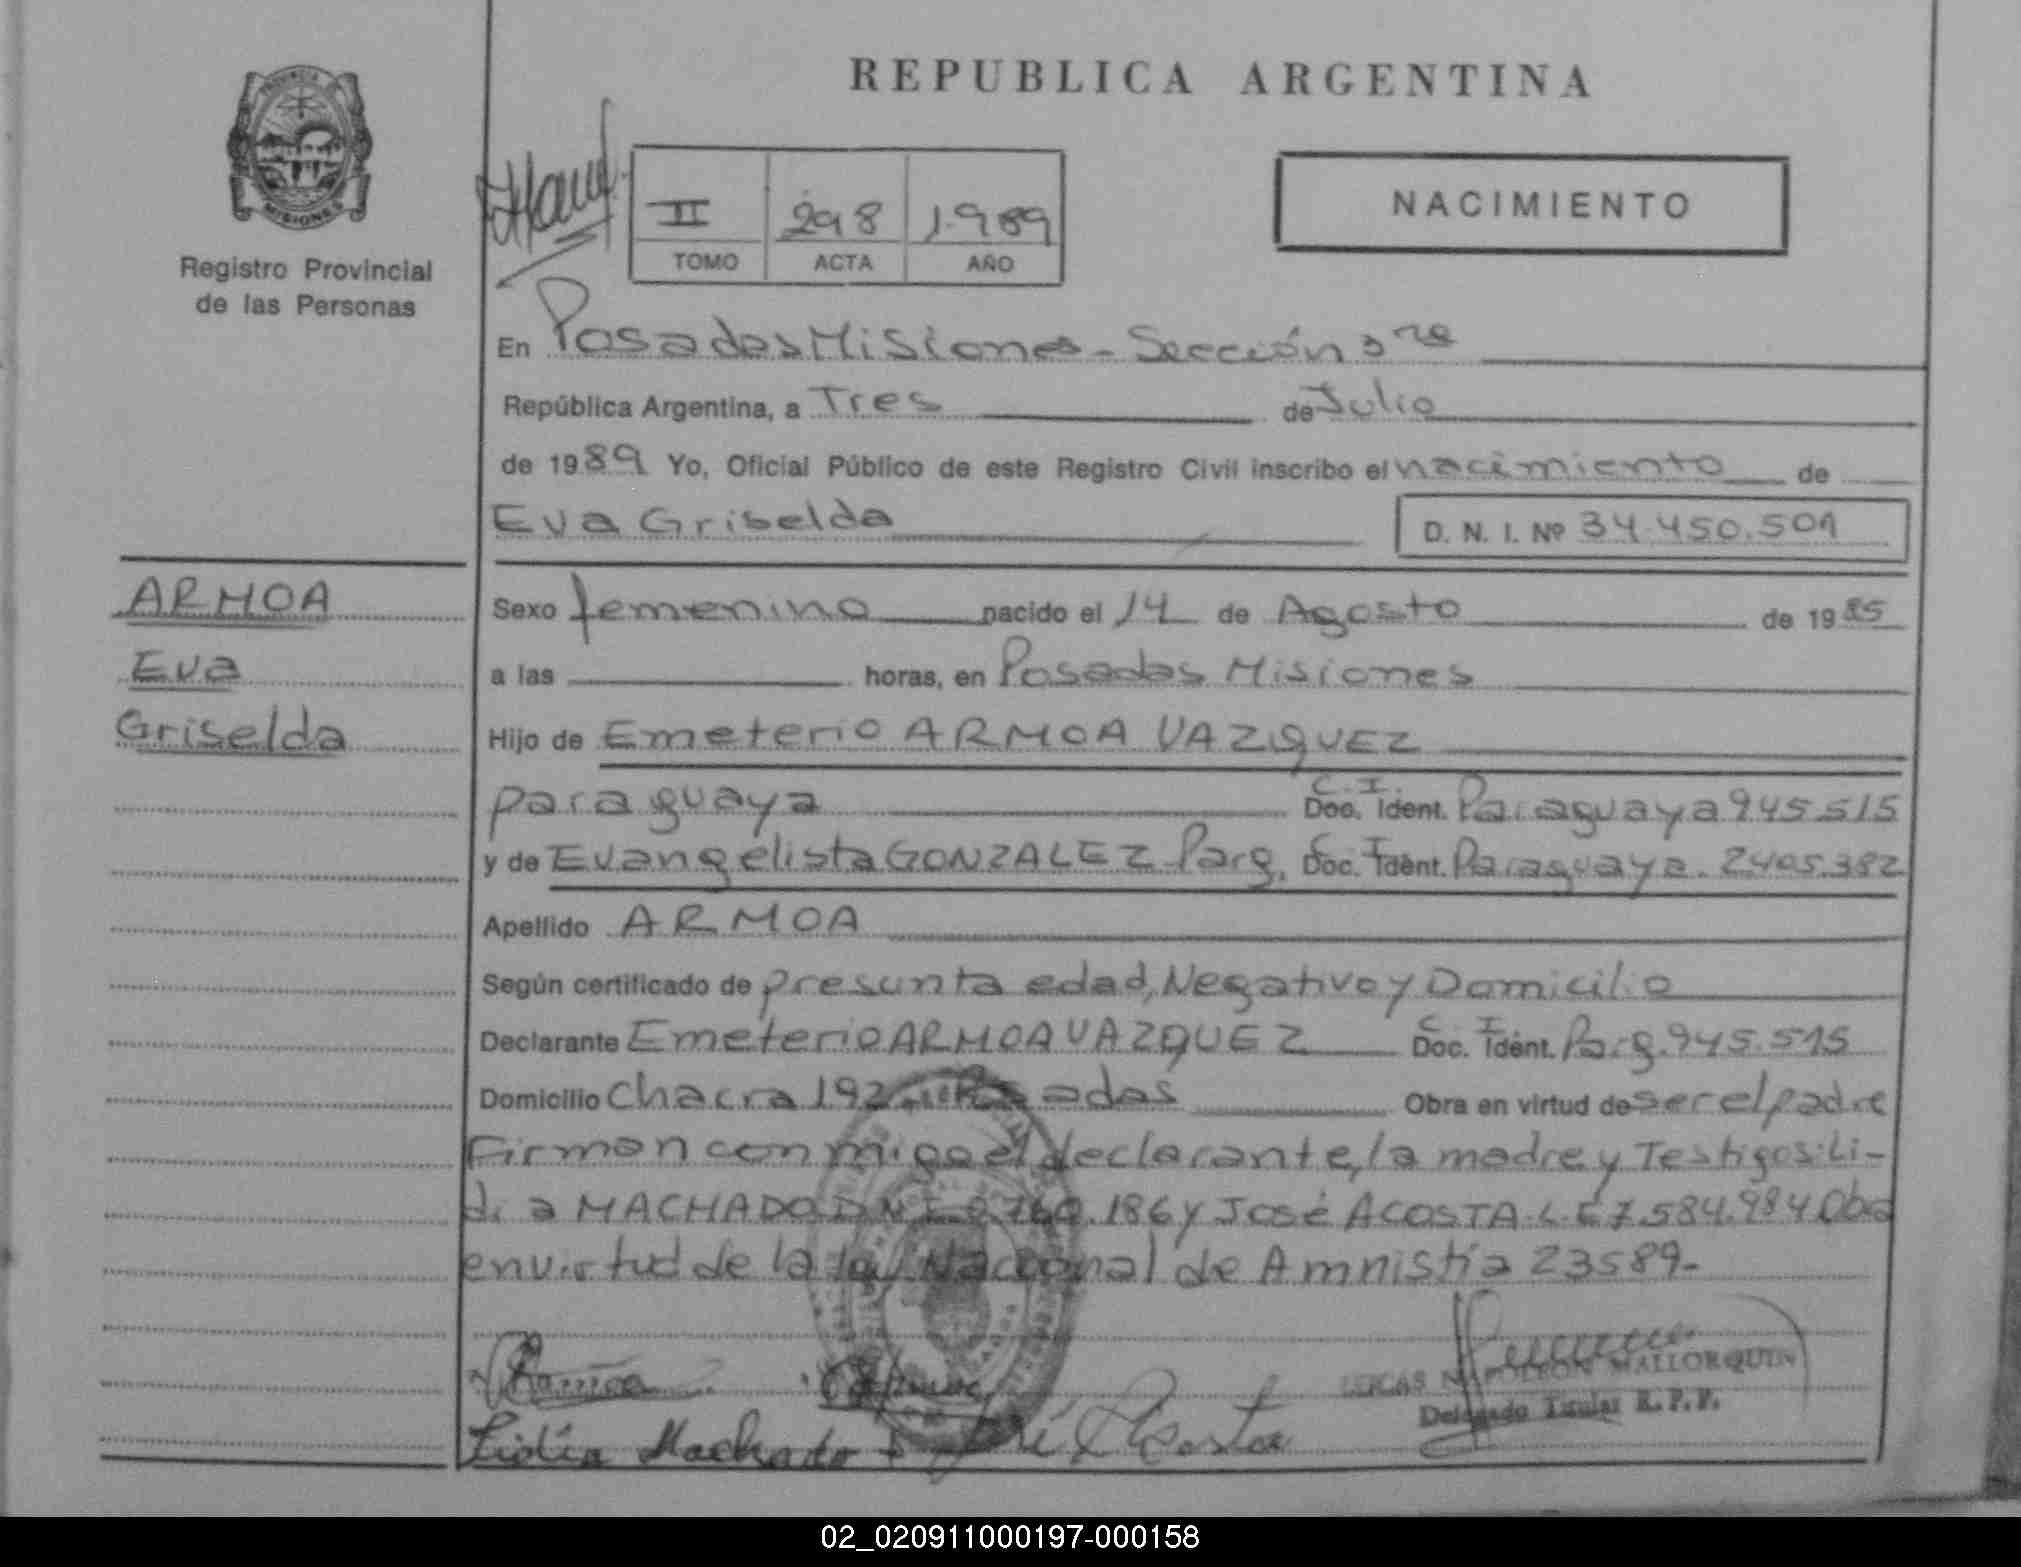 PROVINCIA
MISIONES
Registro Provincial
de las Personas
REPUBLICA ARGENTINA
II 298 1.989
TOMO ACTA AÑO
NACIMIENTO
En Posadas Misiones - Sección 3ra
República Argentina, a Tres de Julio
de 1989 Yo, Oficial Público de este Registro Civil inscribo el nacimiento de
Eva Griselda D. N. I. Nº 34.450.501
ARMOA
Eva
Griselda
Sexo femenino nacido el 14 de Agosto de 1985
a las horas, en Posadas Misiones
Hijo de Emeterio ARMOA VAZQUEZ
paraguaya C. I. Doc. Ident. Paraguaya 945.515
y de Evangelista GONZALEZ Parg. C. I. Doc. Ident. Paraguaya. 2.405.382
Apellido ARMOA
Según certificado de presunta edad, Negativo y Domicilio
Declarante Emeterio ARMOA VAZQUEZ C. I. Doc. Ident. Parg. 945.515
Domicilio Chacra 192 Posadas Obra en virtud de ser el padre
Firman conmigo el declarante, la madre y Testigos: Li-
dia MACHADO DNI 186 y José ACOSTA L.E 7.584.984
en virtud de la ley Nacional de Amnistía 23589-
LUCAS NAPOLEON MALLORQUIN
Delegado Titular R. P. P.
Lidia Machado José Acosta
02_020911000197-000158